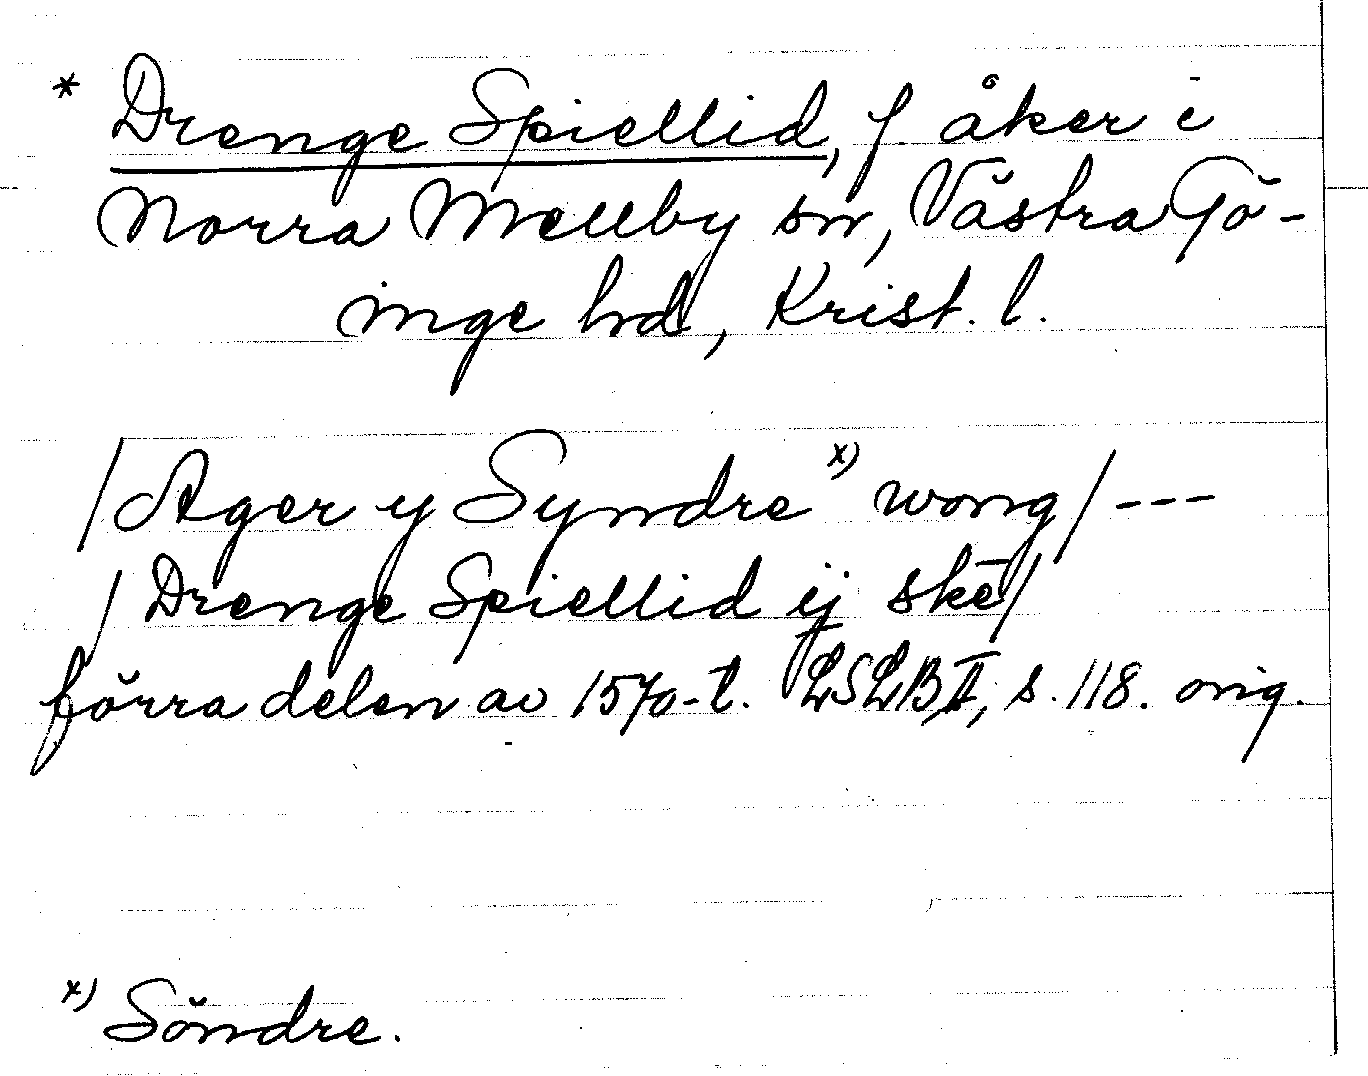 * Drenge Spiellid, f. åker i
Norra Mellby sn, Västra Gö-
inge hd, Krist. l.
/Ager y Syndre x) wong/ ---
/Drenge Spiellid ij skē/
förra delen av 1570-t. LSLB,II, s. 118. orig.
x) Söndre.